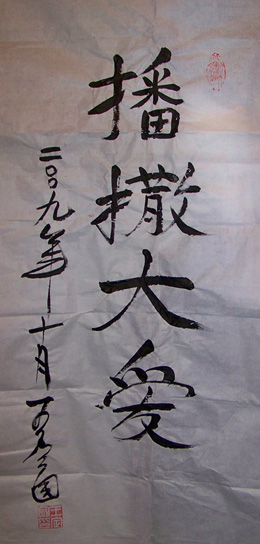 播撒大爱
二〇〇九年十月